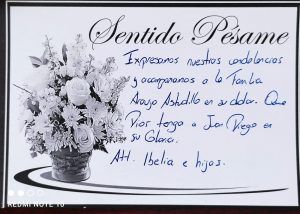 Sentido Pésame
Expresamos nuestras condolencias
y acompañamos a la Familia
Araujo Astudillo en su dolor. Que
Dios tenga a Jean Diego en
su Gloria.
Att. Ibelia e hijos.
REDMI NOTE 10